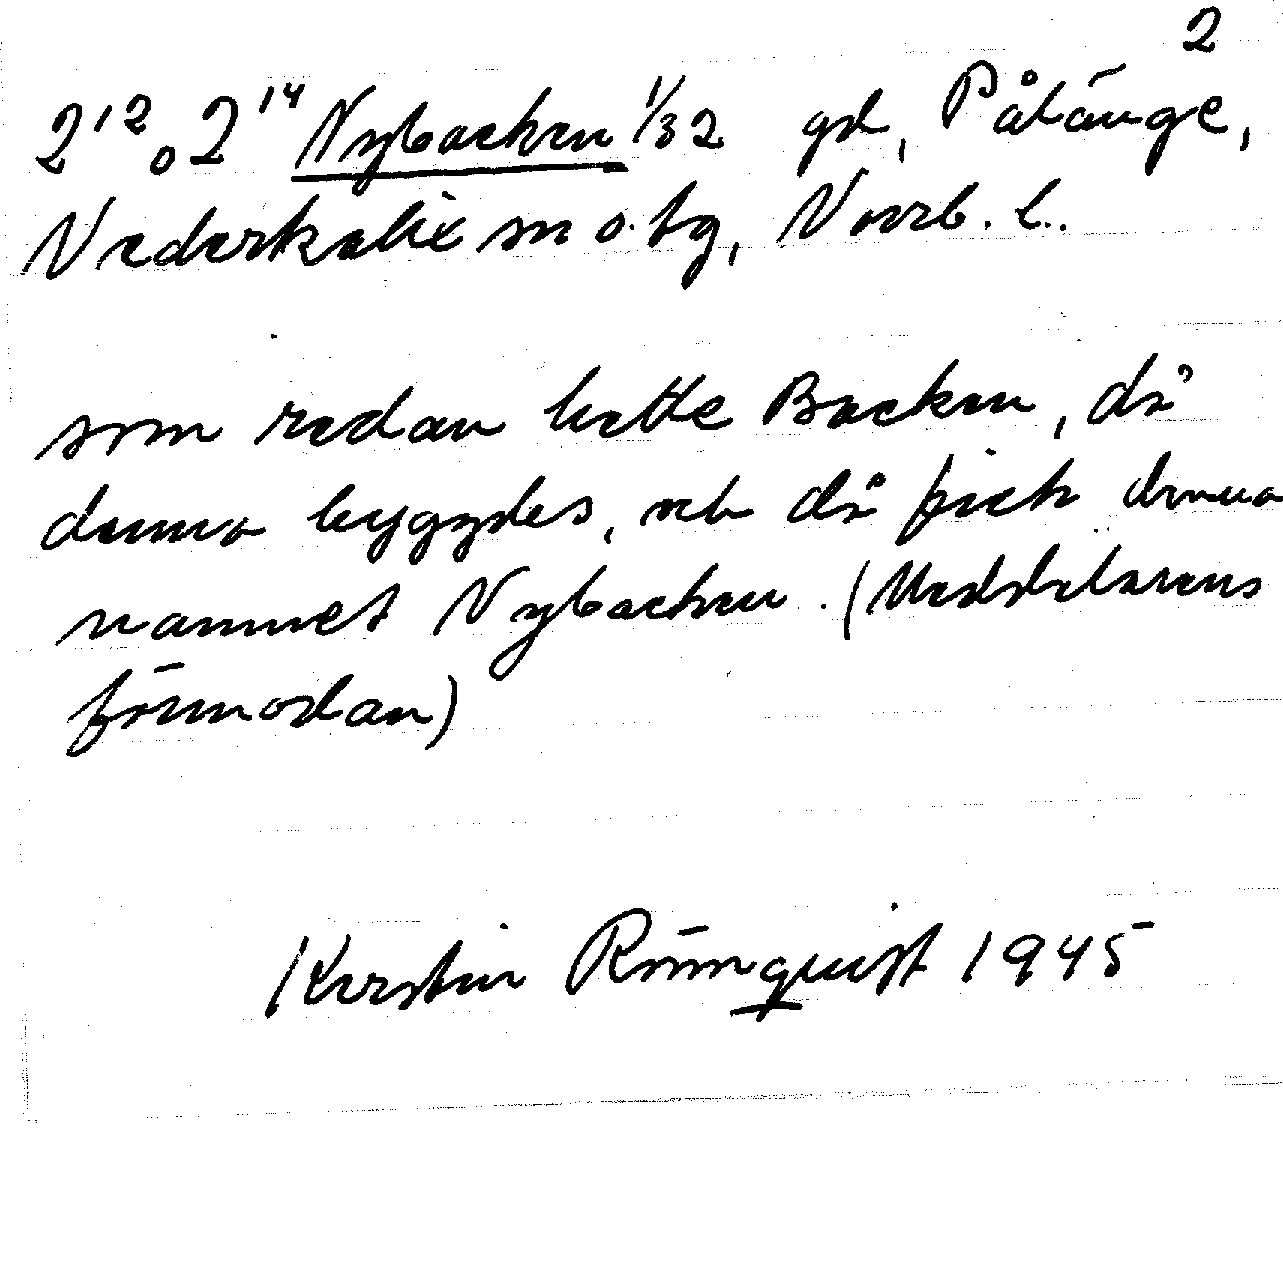 2
2¹² o 2¹⁴ Nybacken 1/32 gd, Pålänge,
Nederkalix sn o. tg, Norrb. l..
som redan hette Backen, då
denna byggdes, och då fick denna
namnet Nybacken. (Meddelarens
förmodan)
Kerstin Rönnquist 1945